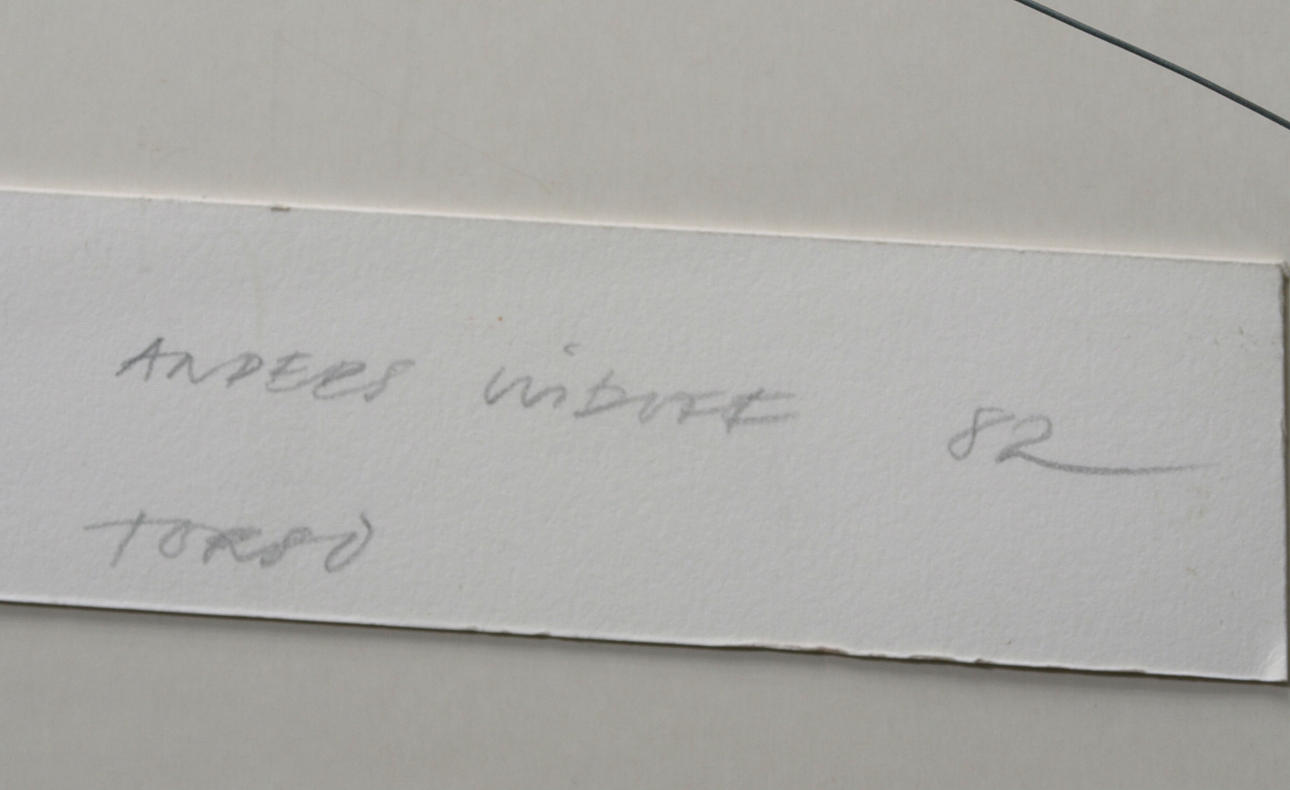 ANDERS WIDOFF 82
TORSO